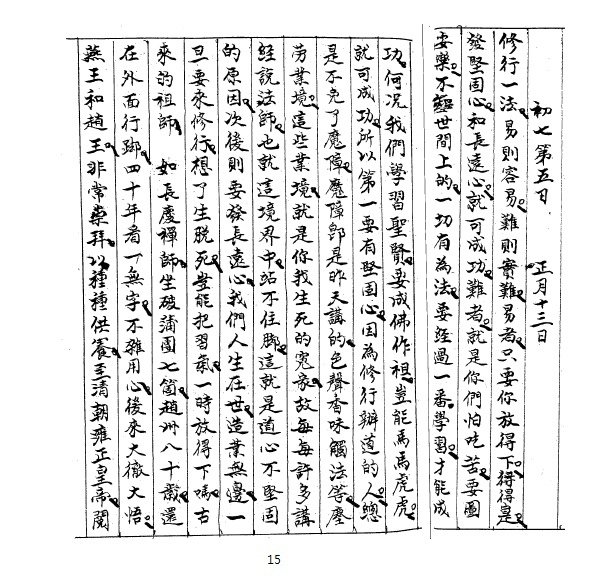 初七第五日　正月十三日
修行一法。易則容易。難則實難。易者。只要你放得下。得是
發堅固心。和長遠心。就可成功。難者。就是你們怕吃苦。要圖
安樂。不知世間上的。一切有為法。要經過一番。學習。才能成
功。何況我們學習聖賢。要成佛作祖。豈能馬馬虎虎。
就可成功。所以第一要有堅固心。因為修行辦道的人。總
是不免了魔障。魔障即是昨天講的。色聲香味觸法等塵
勞業境。這些業境。就是你我生死的冤家。故每每許多講
經說法師。也就這境界中站不住腳。這就是道心不堅固
的原因。次後則要發長遠心。我們人生在世。造業無邊。一
旦要來修行。想了生脫死。豈能把習氣。一時放得下嗎。古
來的祖師。如長慶禪師。坐破蒲團七箇。趙州八十歲。還
在外面行腳。四十年看一無字。不雜用心。後來大徹大悟。
燕王和趙王。非常崇拜。以種種供養。至清朝雍正皇帝。閱
15